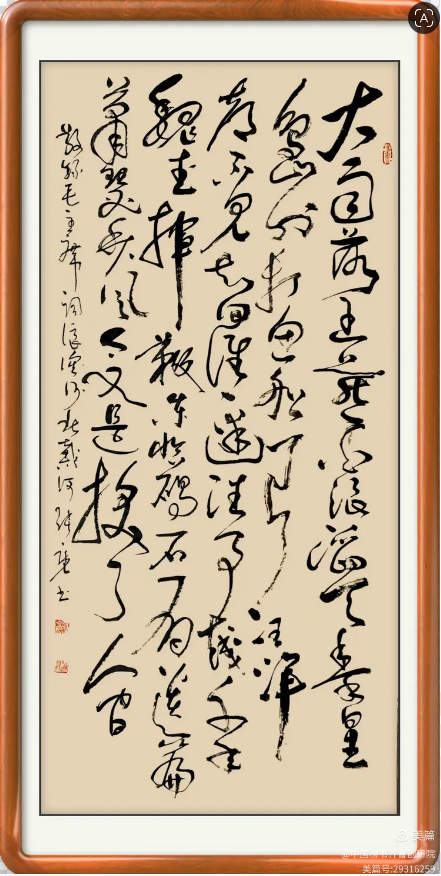 大雨落幽燕白浪滔天秦皇
島外打魚船一片汪洋
都不見知向誰邊往事越千年
魏武揮鞭东临碣石有遺篇
蕭瑟秋风今又是換了人间
敬録毛主席词浪淘沙北戴河 书
美篇
美篇号:29316259